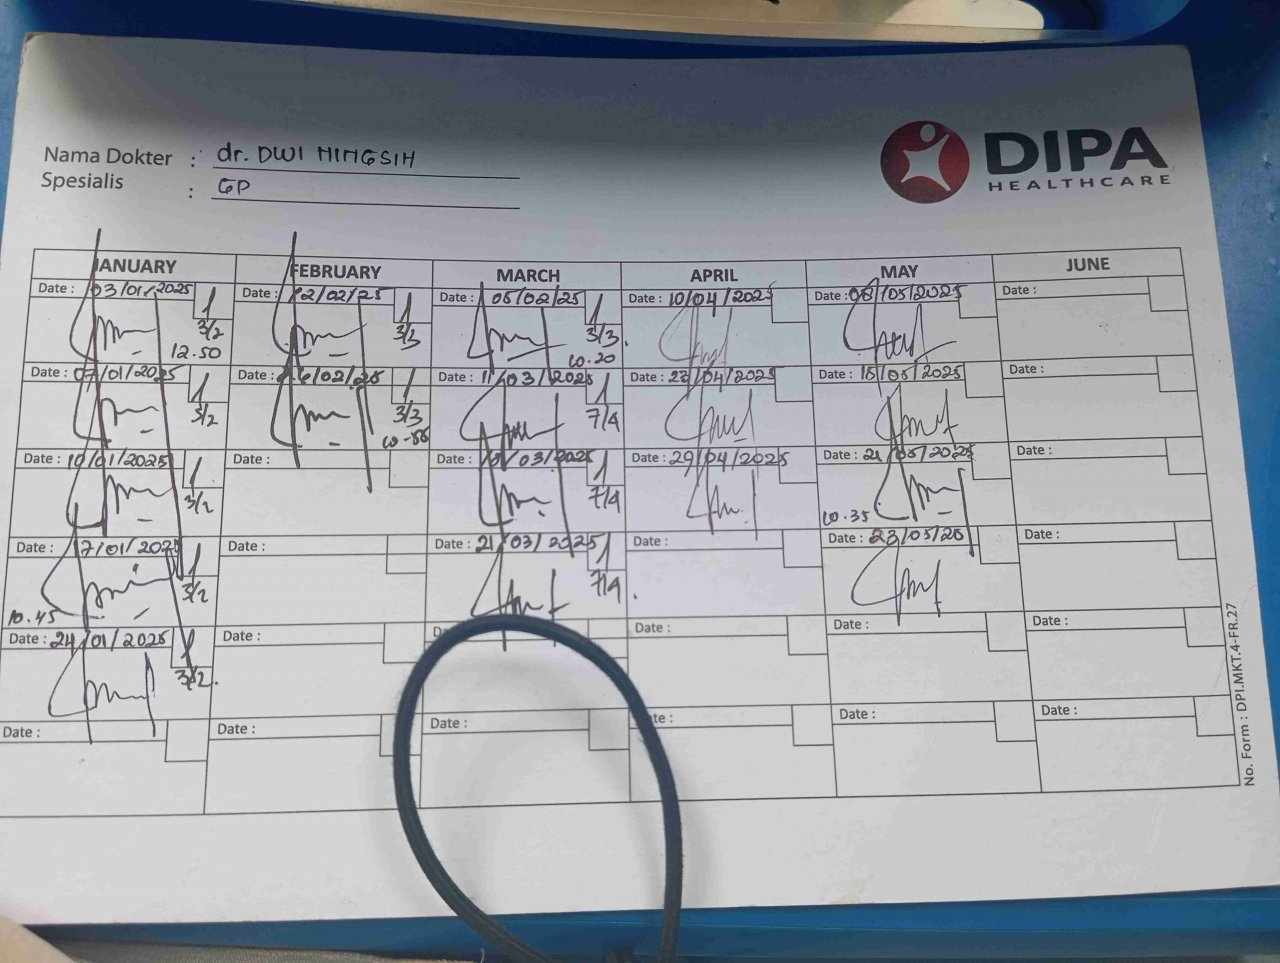 DIPA
HEALTHCARE
Nama Dokter : dr. DWI NINGSIH
Spesialis : GP
JANUARY FEBRUARY MARCH APRIL MAY JUNE
Date : 03/01/2025 1 Date : 12/02/25 1 Date : 05/02/25 1 Date : 10/04/2025 Date : 08/05/2025 Date :
3/2 3/3 3/3.
12.50 10.20
Date : 07/01/2025 1 Date : 26/02/25 1 Date : 11/03/2025 1 Date : 22/04/2025 Date : 15/05/2025 Date :
3/2 3/3 7/4
Date : 10/01/2025 1 Date : Date : /03/2025 1 Date : 29/04/2025 Date : 21/05/2025 Date :
3/2 7/4 10.35
Date : 17/01/2025 1 Date : Date : 21/03/2025 1 Date : Date : 23/05/25 Date :
3/2 7/4
10.45
Date : 24/01/2025 1 Date : Date : Date : Date :
3/2.
Date : Date : Date : Date : Date : Date :
No. Form : DPI.MKT.4-FR.27